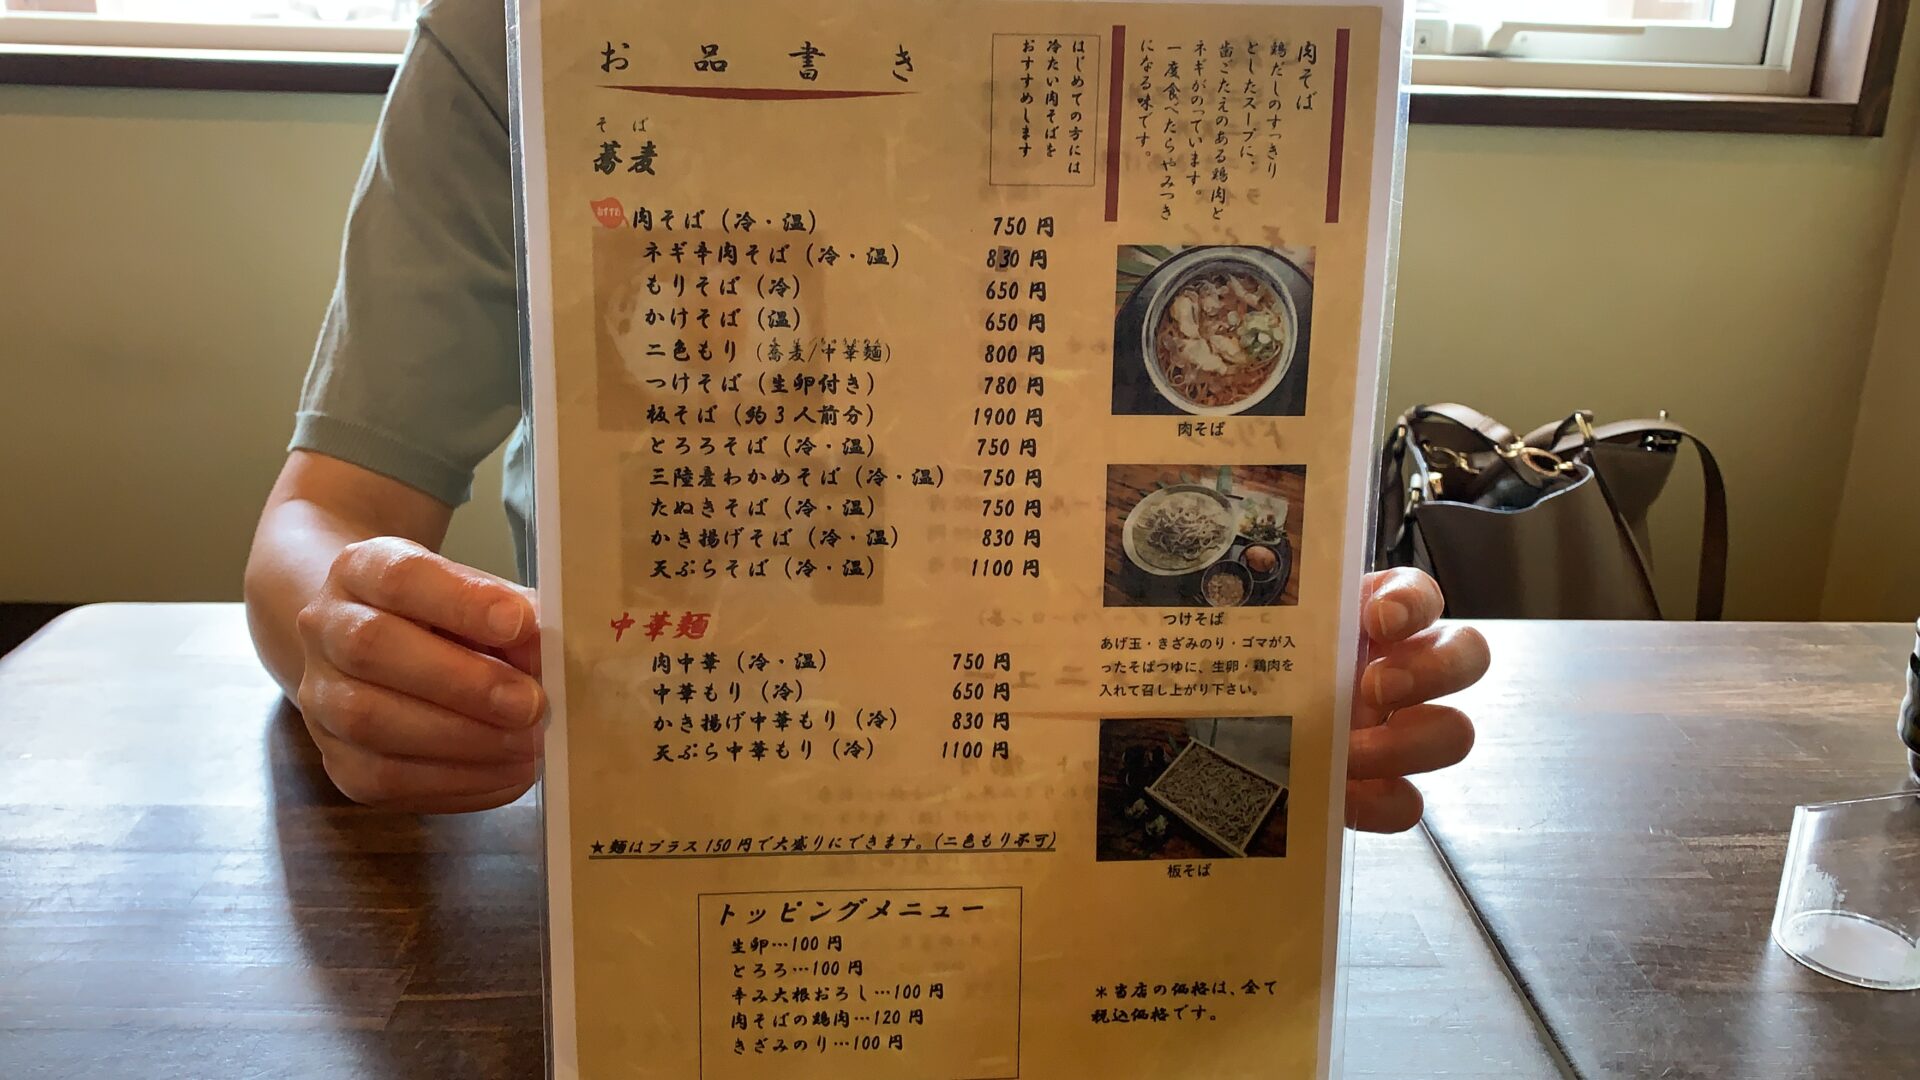 お品書き
そば
蕎麦
おすすめ
肉そば（冷・温） 750円
ネギ辛肉そば（冷・温） 830円
もりそば（冷） 650円
かけそば（温） 650円
二色もり（蕎麦/中華麺） 800円
つけそば（生卵付き） 780円
板そば（約3人前分） 1900円
とろろそば（冷・温） 750円
三陸産わかめそば（冷・温） 750円
たぬきそば（冷・温） 750円
かき揚げそば（冷・温） 830円
天ぷらそば（冷・温） 1100円
中華麺
肉中華（冷・温） 750円
中華もり（冷） 650円
かき揚げ中華もり（冷） 830円
天ぷら中華もり（冷） 1100円
★麺はプラス150円で大盛りにできます。（二色もり不可）
トッピングメニュー
生卵…100円
とろろ…100円
辛み大根おろし…100円
肉そばの鶏肉…120円
きざみのり…100円
肉そば
鶏だしのすっきり
としたスープに、
歯ごたえのある鶏肉と
ネギがのっています。
一度食べたらやみつき
になる味です。
はじめての方には
冷たい肉そばを
おすすめします
肉そば
つけそば
あげ玉・きざみのり・ゴマが入
ったそばつゆに、生卵・鶏肉を
入れて召し上がり下さい。
板そば
＊当店の価格は、全て
税込価格です。